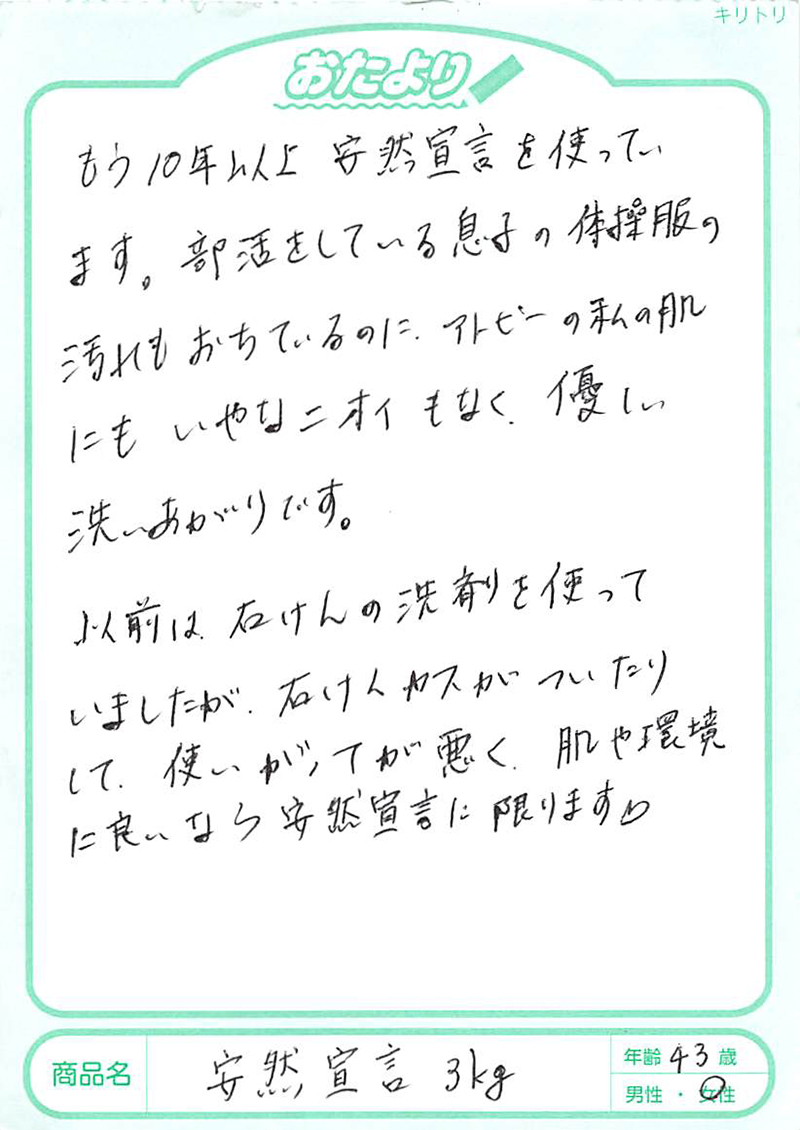 キリトリ
おたより
もう10年以上 安然宣言を使ってい
ます。部活をしている息子の体操服の
汚れもおちているのに、アトピーの私の肌
にも いやなニオイもなく、優しい
洗いあがりです。
以前は、石けんの洗剤を使って
いましたが、石けんカスがついたり
して、使いがってが悪く、肌や環境
に良いなら安然宣言に限ります♡
商品名 安然宣言 3kg
年齢 43 歳
男性 ・ 女性